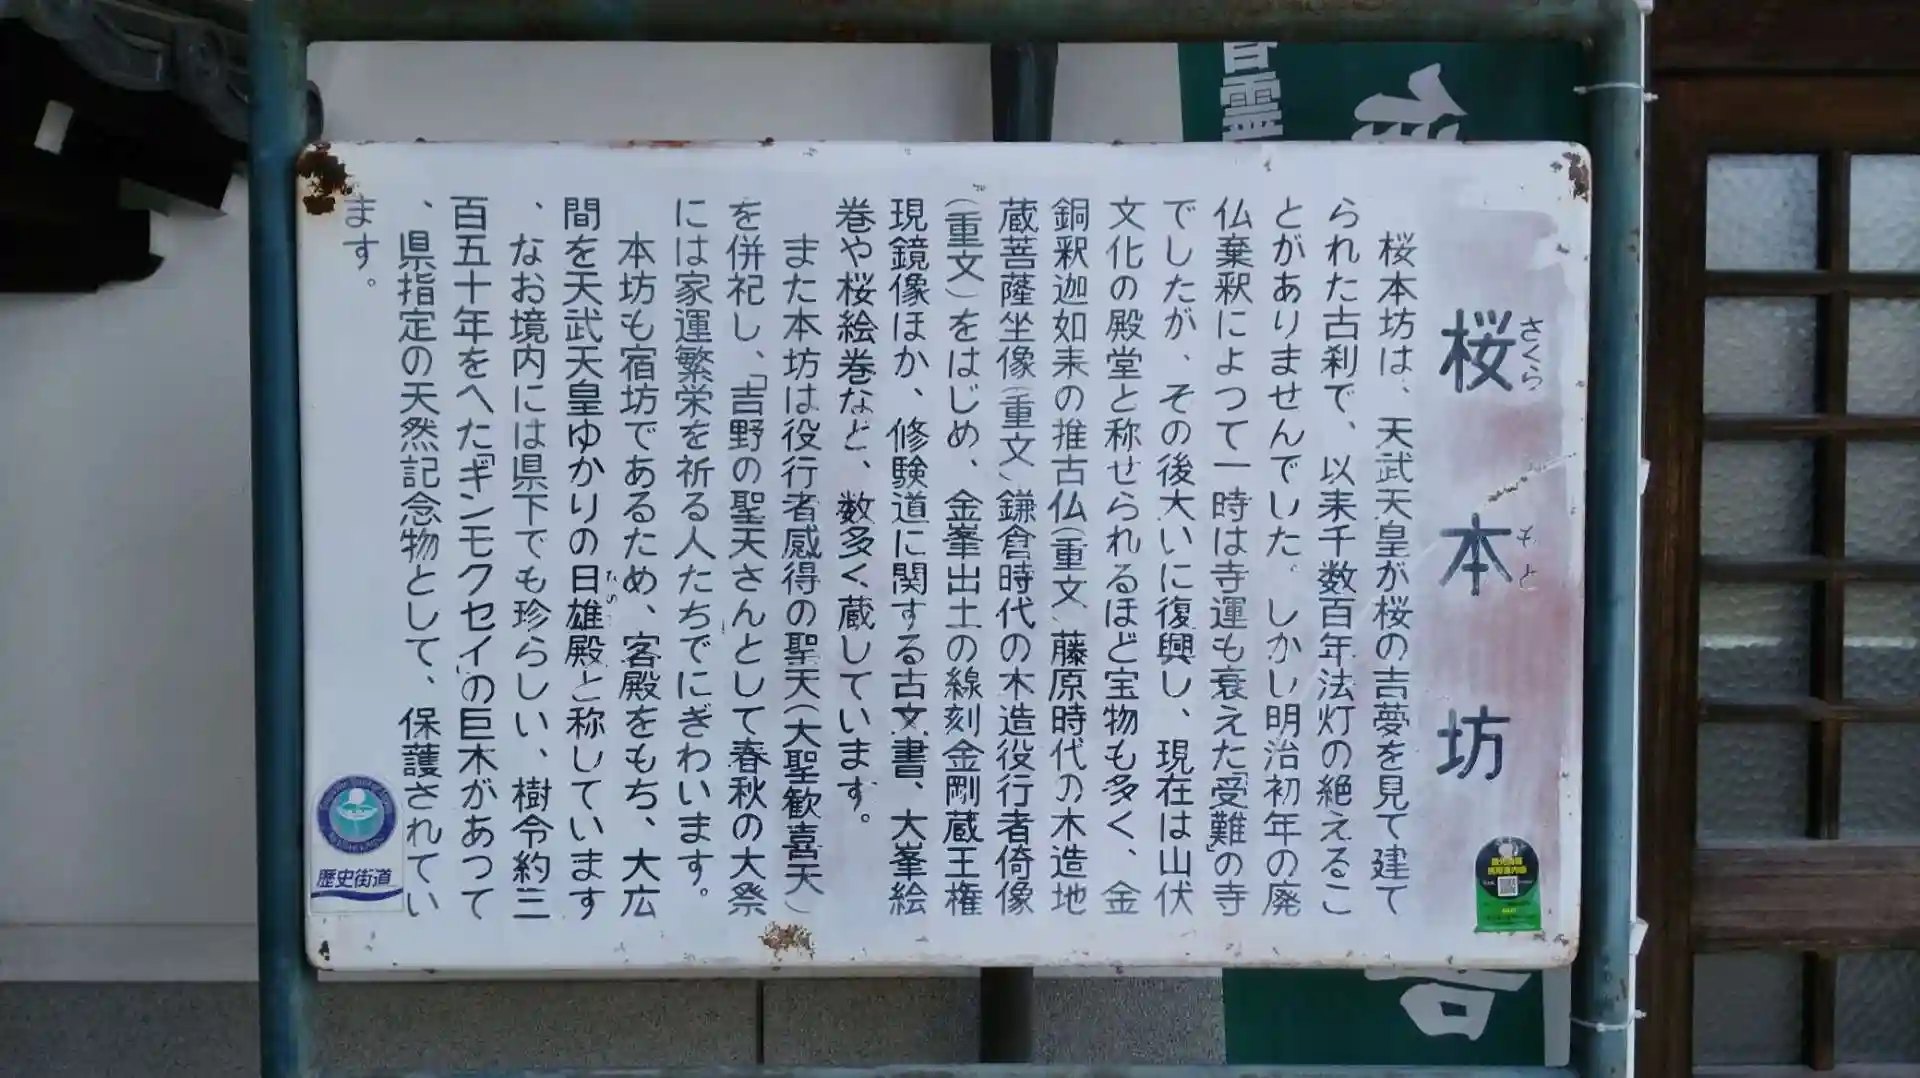 桜本坊
さくら もと
桜本坊は、天武天皇が桜の吉夢を見て建て
られた古刹で、以来千数百年法灯の絶えるこ
とがありませんでした。しかし明治初年の廃
仏棄釈によって一時は寺運も衰えた「受難」の寺
でしたが、その後大いに復興し、現在は山伏
文化の殿堂と称せられるほど宝物も多く、金
銅釈迦如来の推古仏(重文)藤原時代の木造地
蔵菩薩坐像(重文)鎌倉時代の木造役行者倚像
(重文)をはじめ、金峯出土の線刻金剛蔵王権
現鏡像ほか、修験道に関する古文書、大峯絵
巻や桜絵巻など、数多く蔵しています。
また本坊は役行者感得の聖天(大聖歓喜天)
を併祀し、「吉野の聖天さんとして春秋の大祭
には家運繁栄を祈る人たちでにぎわいます。
本坊も宿坊であるため、客殿をもち、大広
間を天武天皇ゆかりの日雄殿と称しています
、なお境内には県下でも珍らしい、樹令約三
百五十年をへた「ギンモクセイ」の巨木があって
、県指定の天然記念物として、保護されてい
ます。
歴史街道
霊